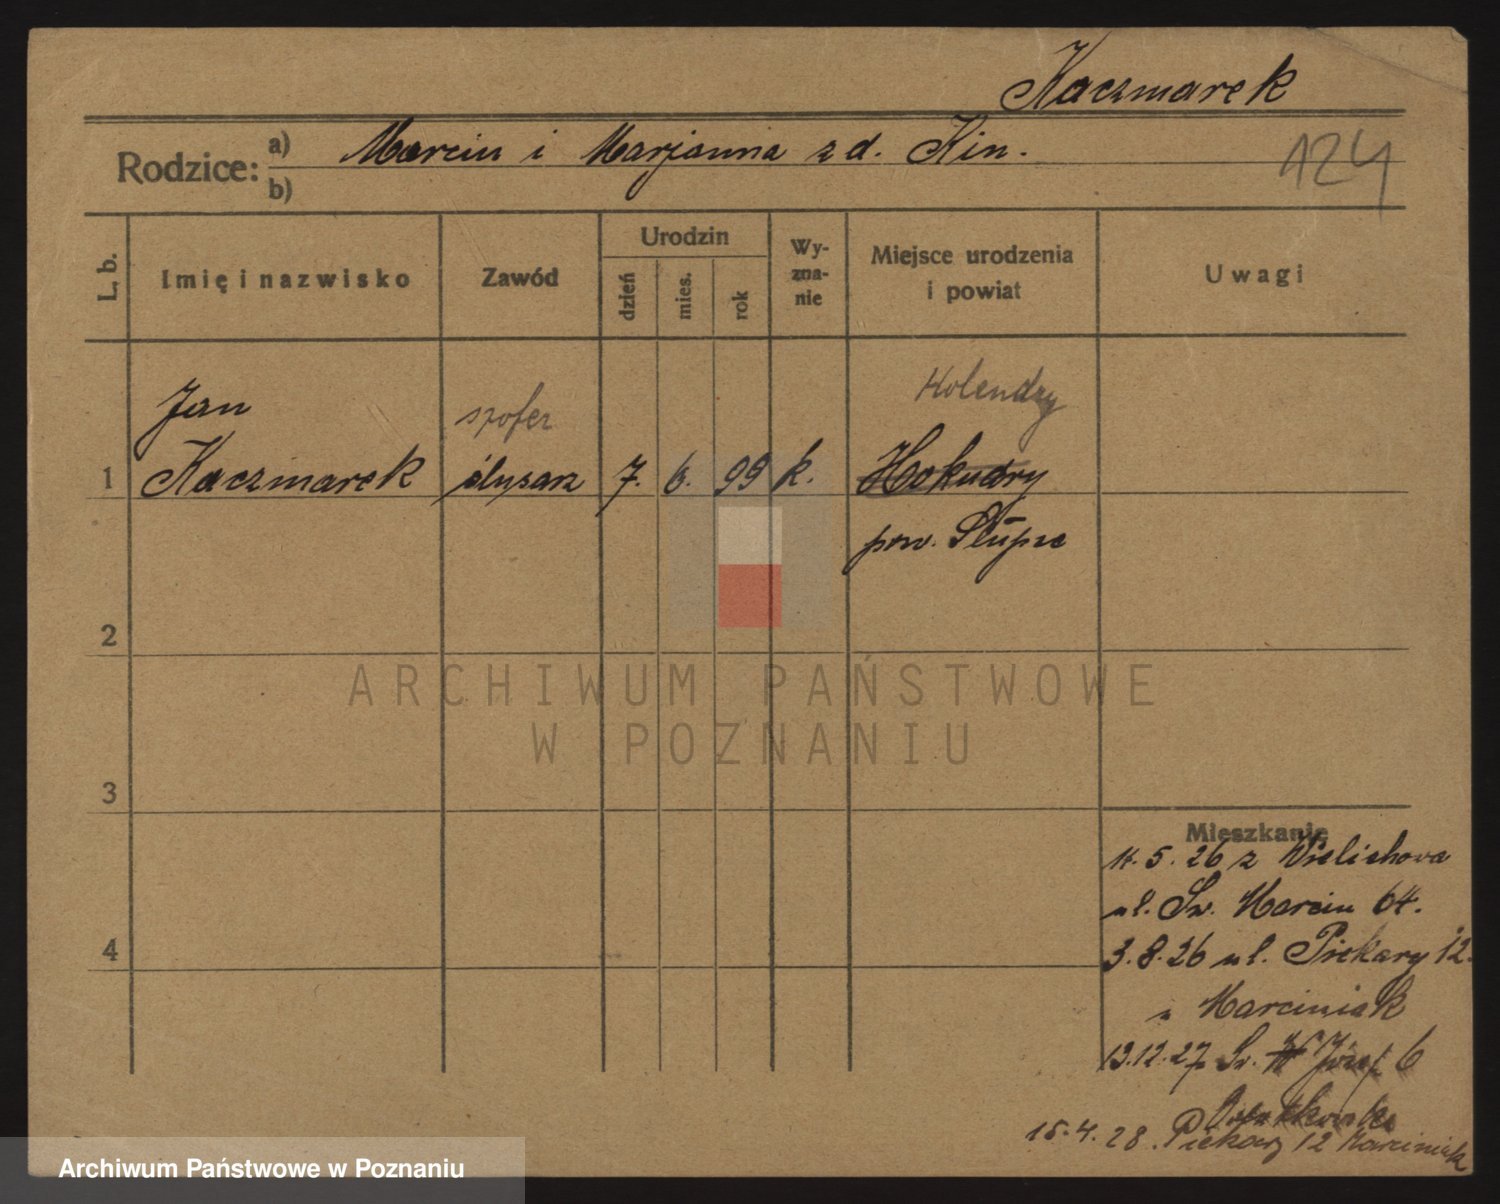 Kaczmarek
Rodzice: a) Marcin i Marjanna z d. Kin.
b)
124
L. b. Imię i nazwisko Zawód Urodzin dzień mies. rok Wy-zna-nie Miejsce urodzenia i powiat Uwagi
Jan szofer Kolendry
1 Kaczmarek ślusarz 7. 6. 99 k. Hokudry
pow. Słupca
2
3
4
Mieszkanie
14.5.26 z Wielichowa
ul. Św. Marcin 64.
3.8.26 ul. Piekary 12.
u Marciniak
13.12.27 Św. Józef 6
15.4.28. Piekary 12 Marciniak
ARCHIWUM PAŃSTWOWE
W POZNANIU
Archiwum Państwowe w Poznaniu